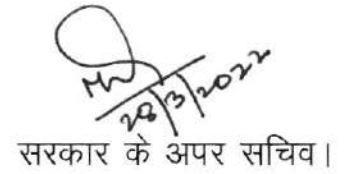 28/3/2022
सरकार के अपर सचिव।